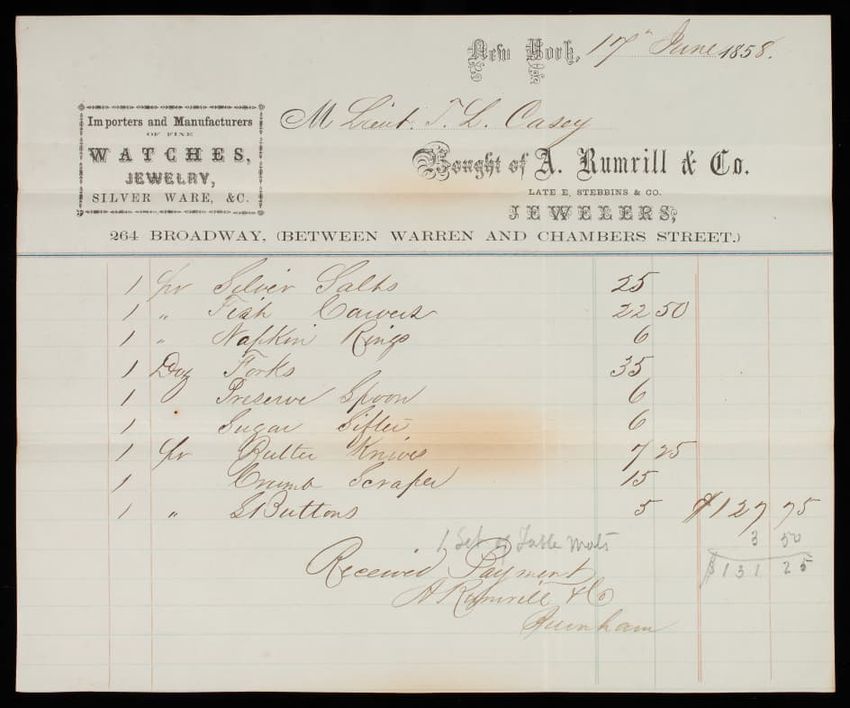 New York, 17" June 1858.
Importers and Manufacturers
OF FINE
WATCHES,
JEWELRY,
SILVER WARE, &C.
M Lieut. T. L. Casey
Bought of A. Rumrill & Co.
LATE E. STEBBINS & CO.
JEWELERS,
264 BROADWAY, (BETWEEN WARREN AND CHAMBERS STREET.)
1 pr Silver Salts 25
1 " Fish Carvers 22 50
1 " Napkin Rings 6
1 Doz Forks 35
1 Preserve Spoon 6
1 Sugar Sifter 6
1 pr Butter Knives 7 25
1 Crumb Scraper 15
1 " S Buttons 5 $127 75
1 Set of Table Mats 3 50
$131 25
Received Payment
A Rumrill & Co